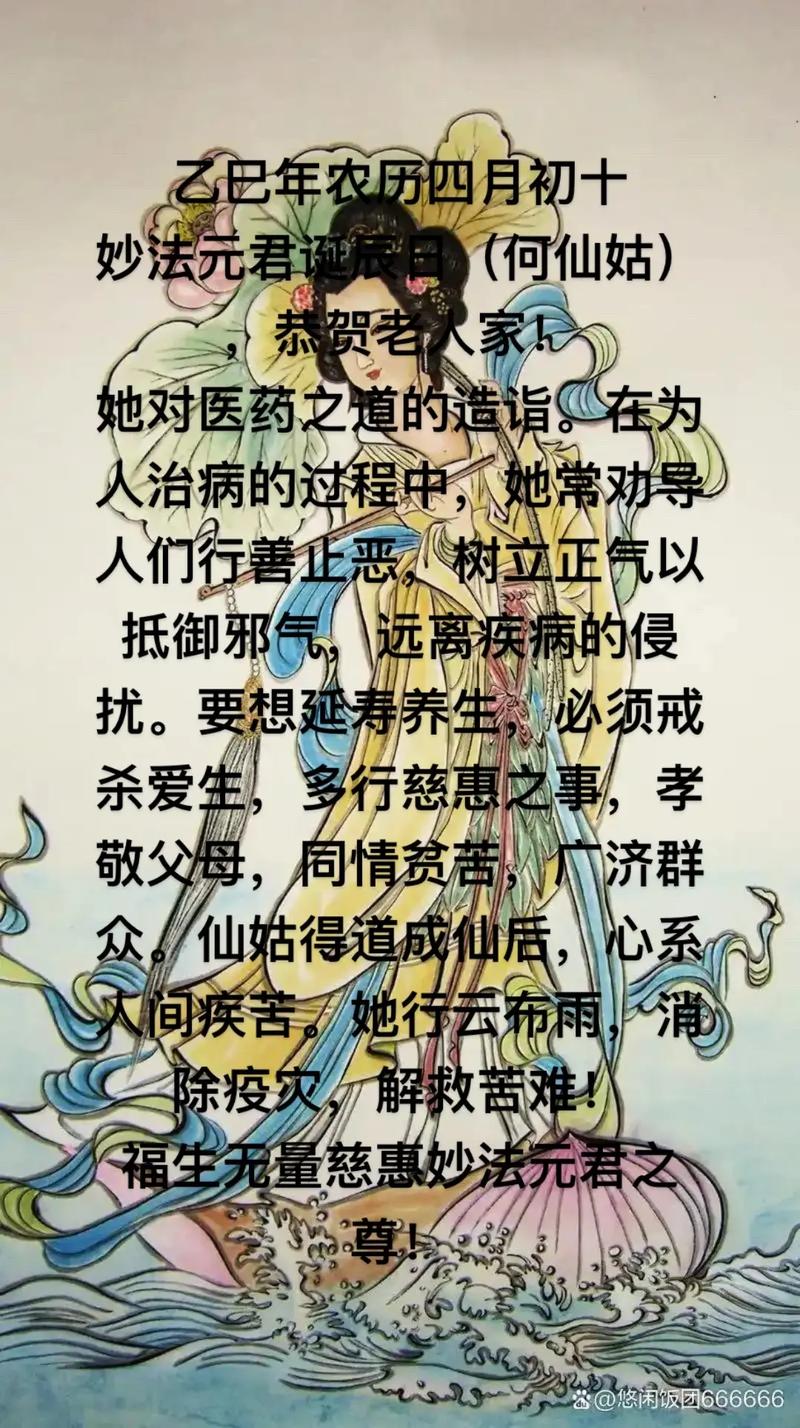 乙巳年农历四月初十
妙法元君诞辰日（何仙姑）
，恭贺老人家！
她对医药之道的造诣。在为
人治病的过程中，她常劝导
人们行善止恶，树立正气以
抵御邪气，远离疾病的侵
扰。要想延寿养生，必须戒
杀爱生，多行慈惠之事，孝
敬父母，同情贫苦，广济群
众。仙姑得道成仙后，心系
人间疾苦。她行云布雨，消
除疫灾，解救苦难！
福生无量慈惠妙法元君之
尊！
@悠闲饭团666666